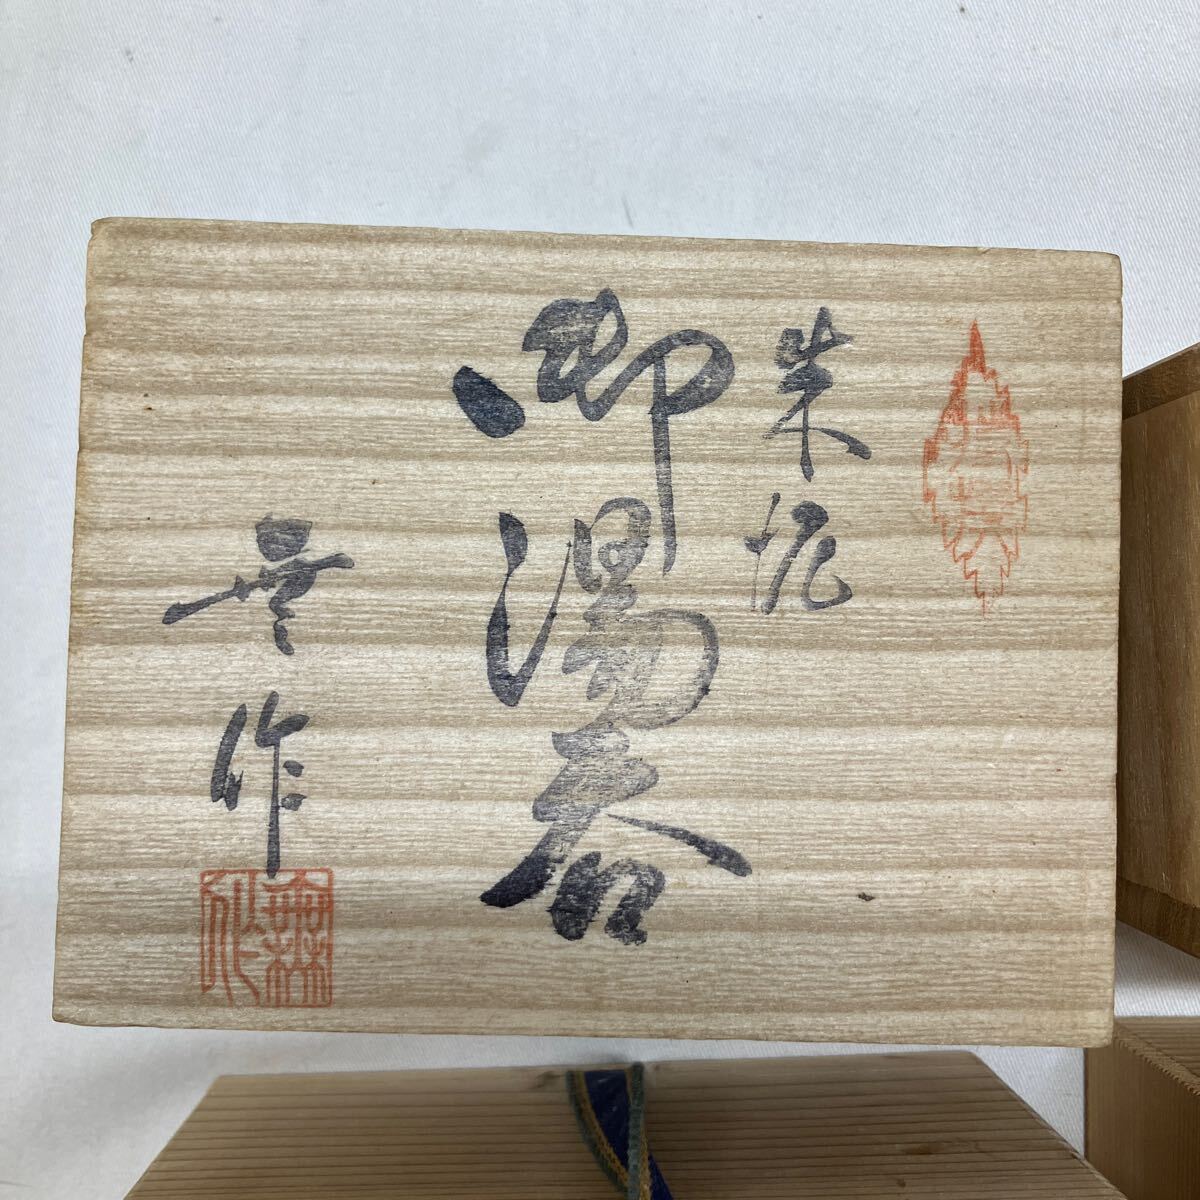 朱泥
御湯呑
無作